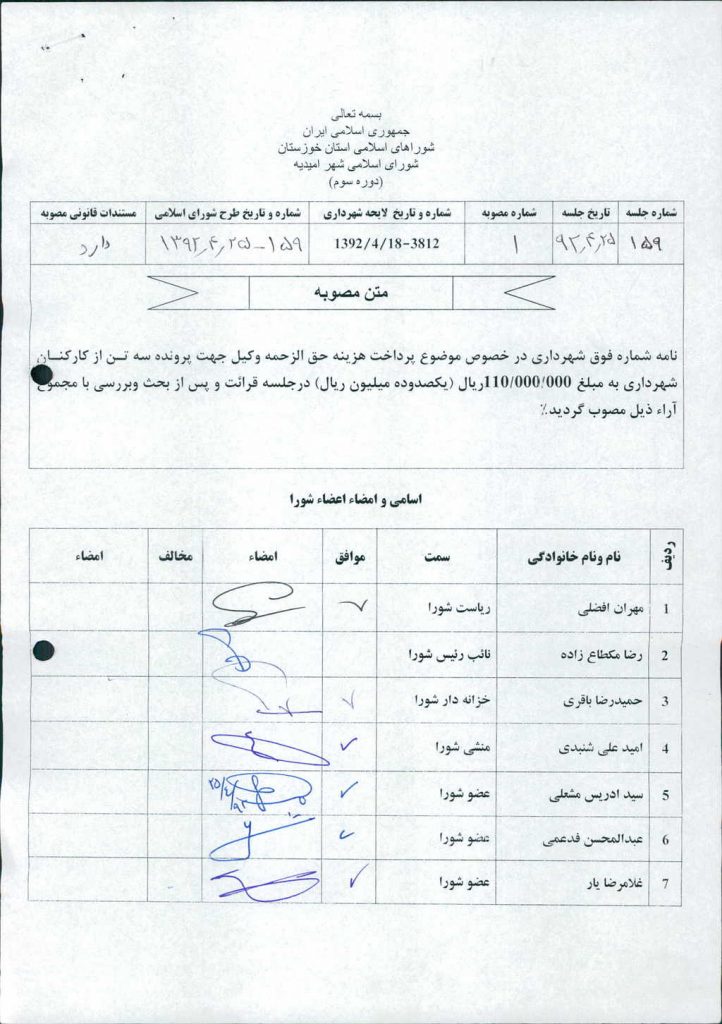 بسمه تعالی
جمهوری اسلامی ایران
شوراهای اسلامی استان خوزستان
شورای اسلامی شهر امیدیه
(دوره سوم)
شماره جلسه تاریخ جلسه شماره مصوبه شماره و تاریخ لایحه شهرداری شماره و تاریخ طرح شورای اسلامی مستندات قانونی مصوبه
۱۵۹ ۹۲,۴,۲۵ ۱ 1392/4/18-3812 ۱۵۹-۱۳۹۲,۴,۲۵ دارد
متن مصوبه
نامه شماره فوق شهرداری در خصوص موضوع پرداخت هزینه حق الزحمه وکیل جهت پرونده سه تن از کارکنان
شهرداری به مبلغ 110/000/000ریال (یکصدوده میلیون ریال) درجلسه قرائت و پس از بحث وبررسی با مجموع
آراء ذیل مصوب گردید٪
اسامی و امضاء اعضاء شورا
ردیف نام ونام خانوادگی سمت موافق امضاء مخالف امضاء
1 مهران افضلی ریاست شورا
2 رضا مکطاع زاده نائب رئیس شورا
3 حمیدرضا باقری خزانه دار شورا
4 امید علی شنبدی منشی شورا
5 سید ادریس مشعلی عضو شورا ۲۵/۴/۹۲
6 عبدالمحسن فدعمی عضو شورا
7 غلامرضا یار عضو شورا